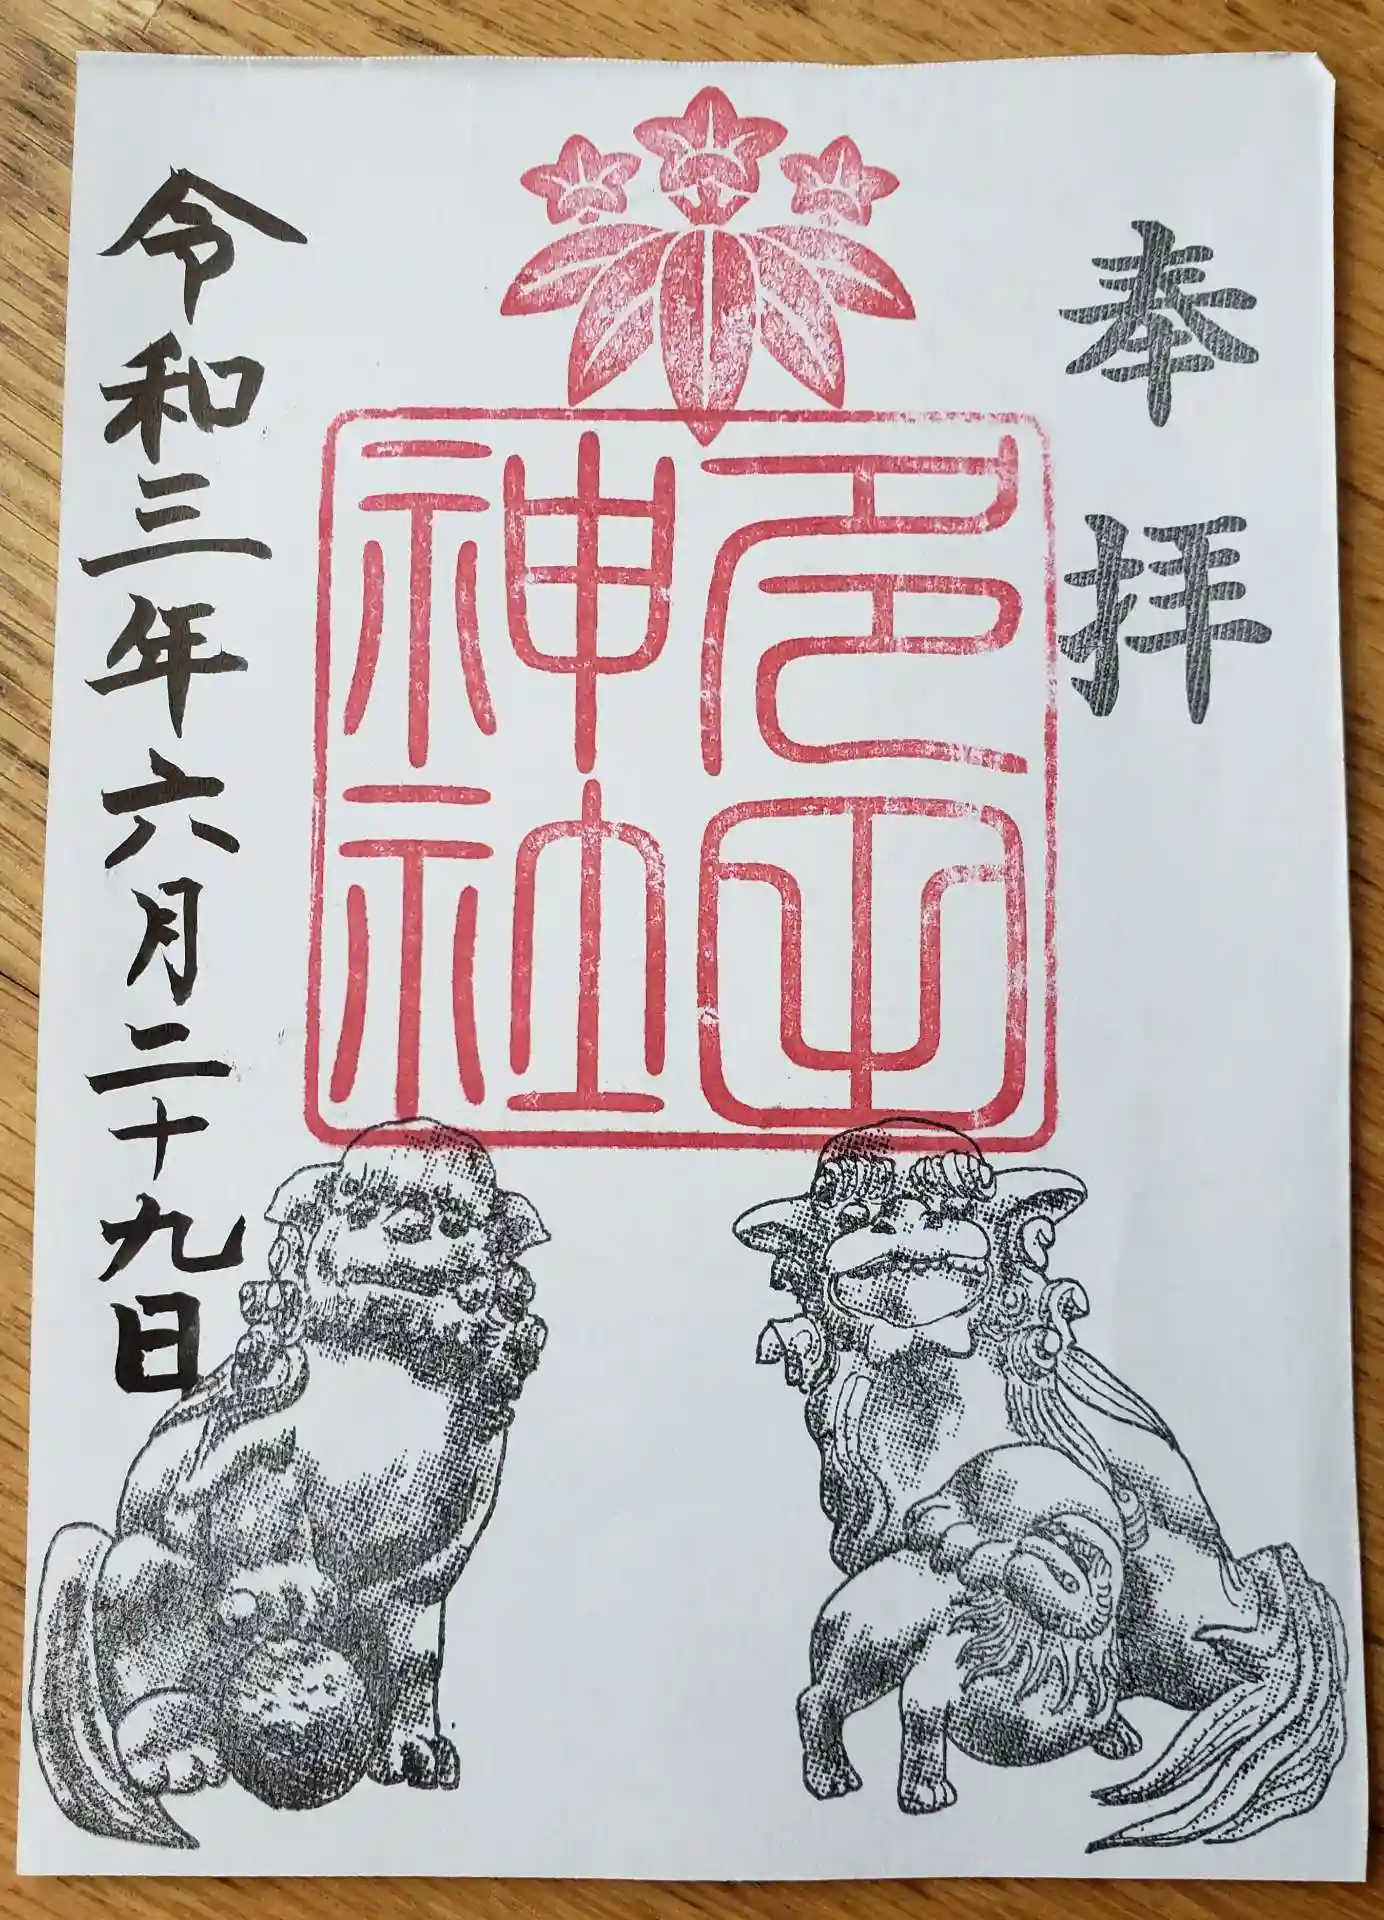 奉拝
神社
令和三年六月二十九日